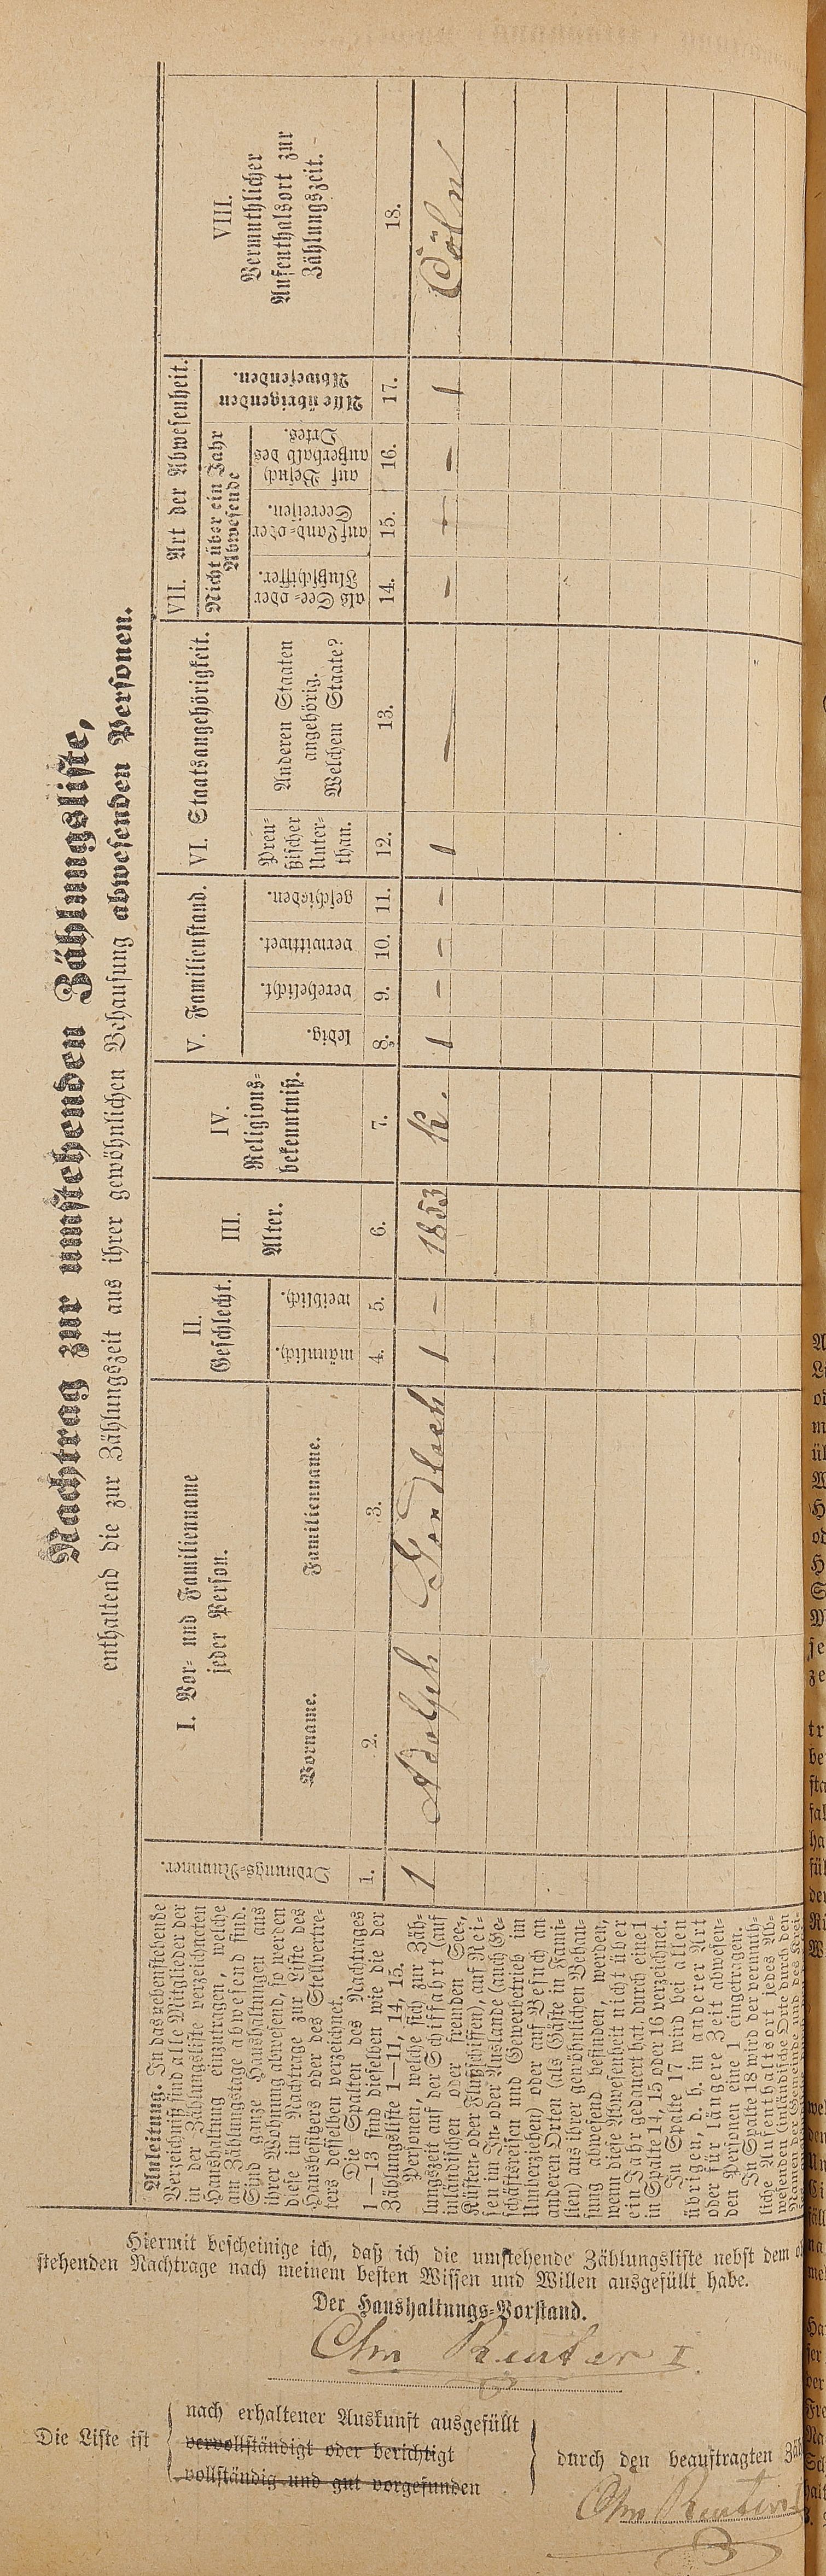 Nachtrag zur umstehenden Zählungsliste,
enthaltend die zur Zählungszeit aus ihrer gewöhnlichen Behausung abwesenden Personen.
Anleitung. In das nebenstehende
Verzeichniß sind alle Mitglieder der
in der Zählungsliste verzeichneten
Haushaltung einzutragen, welche
am Zählungstage abwesend sind.
Sind ganze Haushaltungen aus
ihrer Wohnung abwesend, so werden
diese im Nachtrage zur Liste des
Hausbesitzers oder des Stellvertre-
ters desselben verzeichnet.
Die Spalten des Nachtrages
1—13 sind dieselben wie die der
Zählungsliste 1—11, 14, 15.
Personen, welche sich zur Zäh-
lungszeit auf der Schifffahrt (auf
inländischen oder fremden See-,
Küsten- oder Flußschiffen), auf Rei-
sen im In- oder Auslande (auch Ge-
schäftsreisen und Gewerbetrieb im
Umherziehen) oder auf Besuch an
anderen Orten (als Gäste in Fami-
lien) aus ihrer gewöhnlichen Behau-
sung abwesend befinden, werden,
wenn diese Abwesenheit nicht über
ein Jahr gedauert hat, durch eine 1
in Spalte 14, 15 oder 16 verzeichnet.
In Spalte 17 wird bei allen
übrigen, d. h. in anderer Art
oder für längere Zeit abwesen-
den Personen eine 1 eingetragen.
In Spalte 18 wird der vermuth-
liche Aufenthaltsort jedes Ab-
wesenden (inländische Orte durch den
Namen der Gemeinde und des Krei-
Ordnungs-Nummer.
1.
I. Vor- und Familienname
jeder Person.
Vorname.
2.
Familienname.
3.
II.
Geschlecht.
männlich.
4.
weiblich.
5.
III.
Alter.
6.
IV.
Religions-
bekenntniß.
7.
V. Familienstand.
ledig.
8.
verehelicht.
9.
verwittwet.
10.
geschieden.
11.
VI. Staatsangehörigkeit.
Preu-
ßischer
Unter-
than.
12.
Anderen Staaten
angehörig.
Welchem Staate?
13.
VII. Art der Abwesenheit.
Nicht über ein Jahr
Abwesende
als See- oder
Flußschiffer.
14.
auf Land- oder
Seereisen.
15.
auf Besuch
außerhalb des
Ortes.
16.
Alle übrigen
Abwesenden.
17.
VIII.
Vermuthlicher
Aufenthalsort zur
Zählungszeit.
18.
1 Adolph Gondloch 1 – 1853 K. 1 – – – 1 – – – – 1 Cöln
Hiermit bescheinige ich, daß ich die umstehende Zählungsliste nebst dem
stehenden Nachtrage nach meinem besten Wissen und Willen ausgefüllt habe.
Der Haushaltungs-Vorstand.
Chr Reuter I
Die Liste ist
nach erhaltener Auskunft ausgefüllt
vervollständigt oder berichtigt
vollständig und gut vorgefunden
durch den beauftragten
Chr Reuter